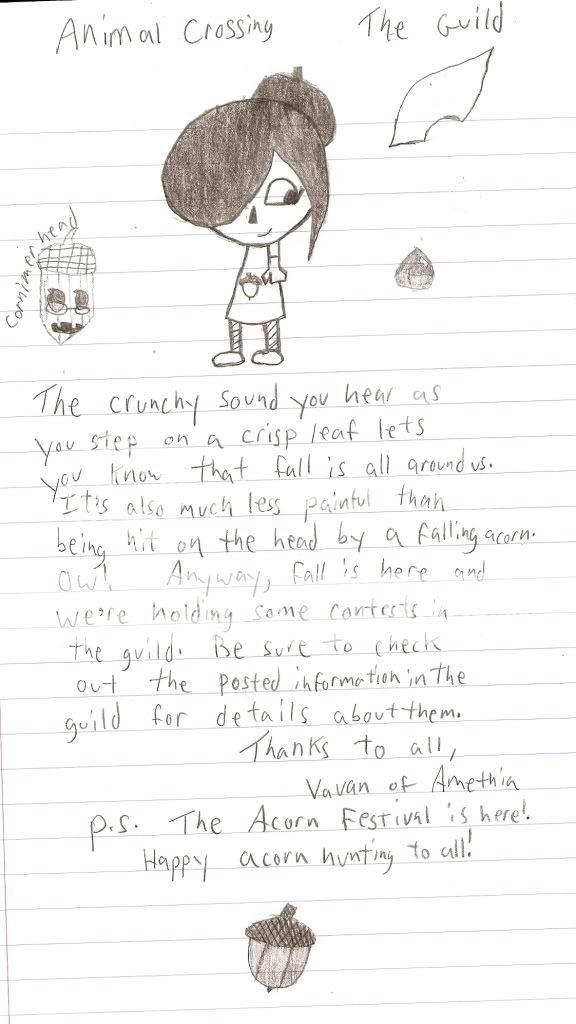 Animal Crossing The Guild
Cornimer head
The crunchy sound you hear as
you step on a crisp leaf lets
you know that fall is all around us.
It's also much less painful than
being hit on the head by a falling acorn.
Ow! Anyway, fall is here and
we're holding some contests in
the guild. Be sure to check
out the posted information in the
guild for details about them.
Thanks to all,
Vavan of Amethia
p.s. The Acorn Festival is here!
Happy acorn hunting to all!